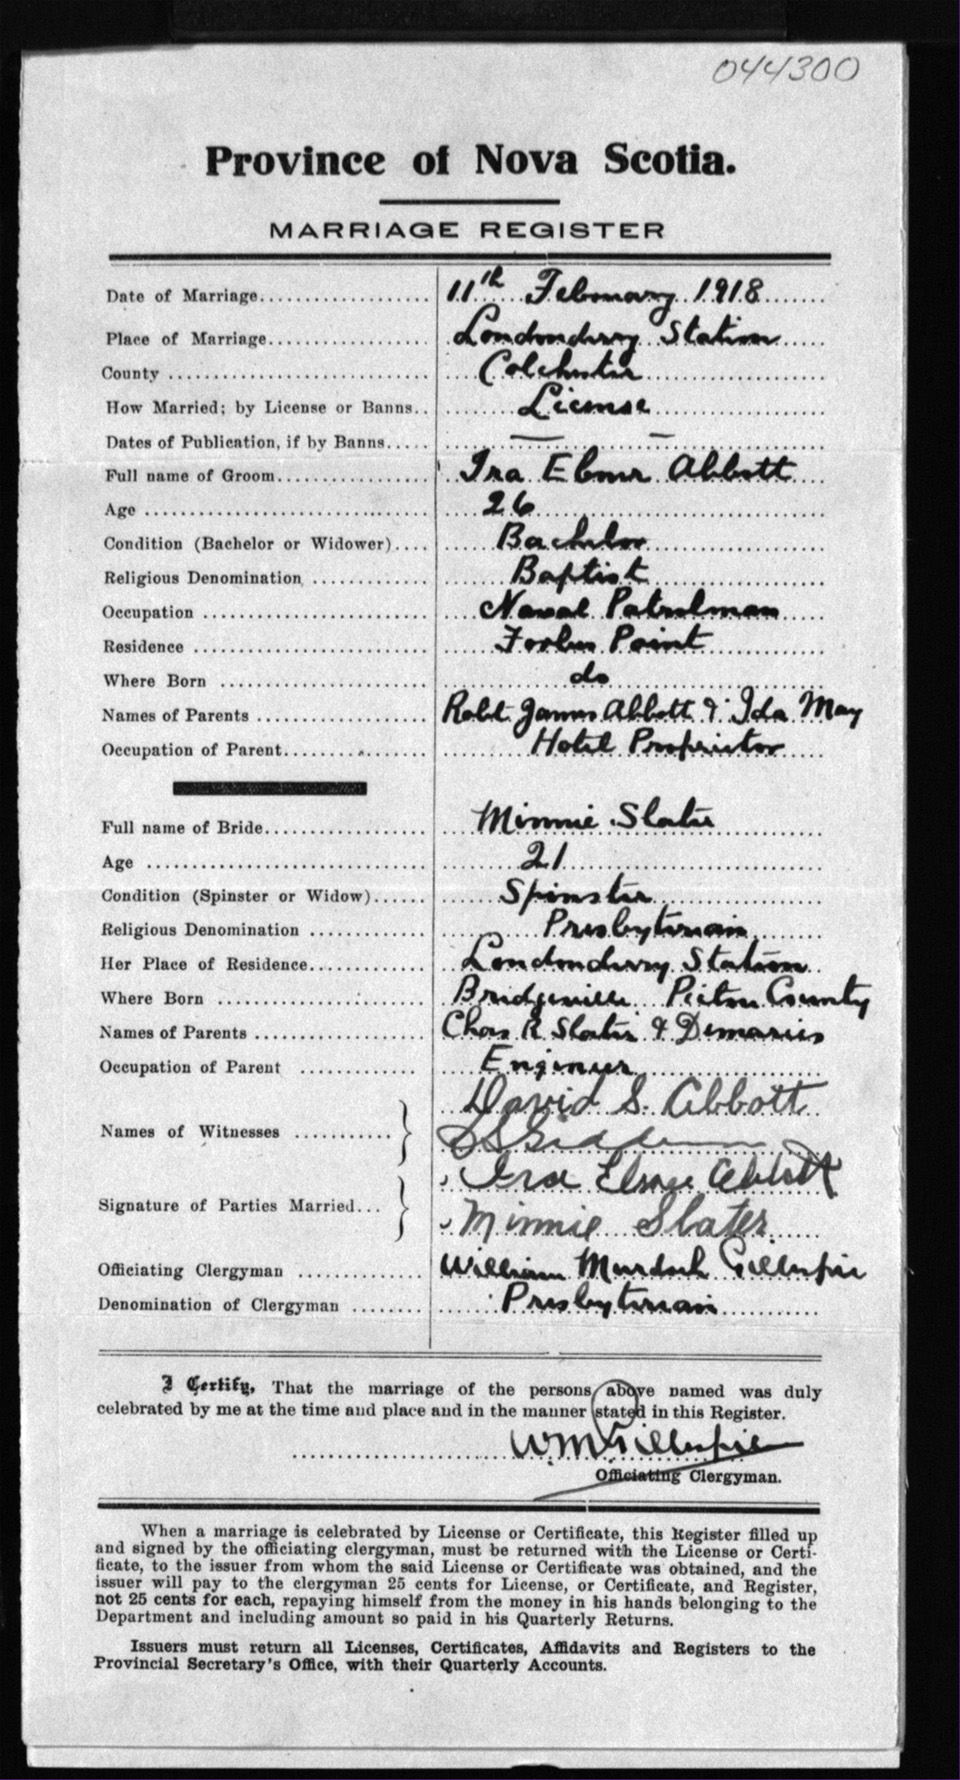 044300
Province of Nova Scotia.
MARRIAGE REGISTER
Date of Marriage 11th February 1918
Place of Marriage Londonderry Station
County Colchester
How Married; by License or Banns License
Dates of Publication, if by Banns — —
Full name of Groom Ira Elmer Abbott
Age 26
Condition (Bachelor or Widower) Bachelor
Religious Denomination Baptist
Occupation Naval Patrolman
Residence Forbes Point
Where Born do
Names of Parents Robt James Abbott & Ida May
Occupation of Parent Hotel Proprietor
Full name of Bride Minnie Slater
Age 21
Condition (Spinster or Widow) Spinster
Religious Denomination Presbyterian
Her Place of Residence Londonderry Station
Where Born Bridgeville Pictou County
Names of Parents Chas R Slater & Demaries
Occupation of Parent Engineer
David S. Abbott
Names of Witnesses
Ira Elmer Abbott
Signature of Parties Married
Minnie Slater
Officiating Clergyman William Murdoch Gillespie
Denomination of Clergyman Presbyterian
I Certify, That the marriage of the persons above named was duly
celebrated by me at the time and place and in the manner stated in this Register.
W M Gillespie
Officiating Clergyman.
When a marriage is celebrated by License or Certificate, this Register filled up
and signed by the officiating clergyman, must be returned with the License or Certi-
ficate, to the issuer from whom the said License or Certificate was obtained, and the
issuer will pay to the clergyman 25 cents for License, or Certificate, and Register,
not 25 cents for each, repaying himself from the money in his hands belonging to the
Department and including amount so paid in his Quarterly Returns.
Issuers must return all Licenses, Certificates, Affidavits and Registers to the
Provincial Secretary's Office, with their Quarterly Accounts.